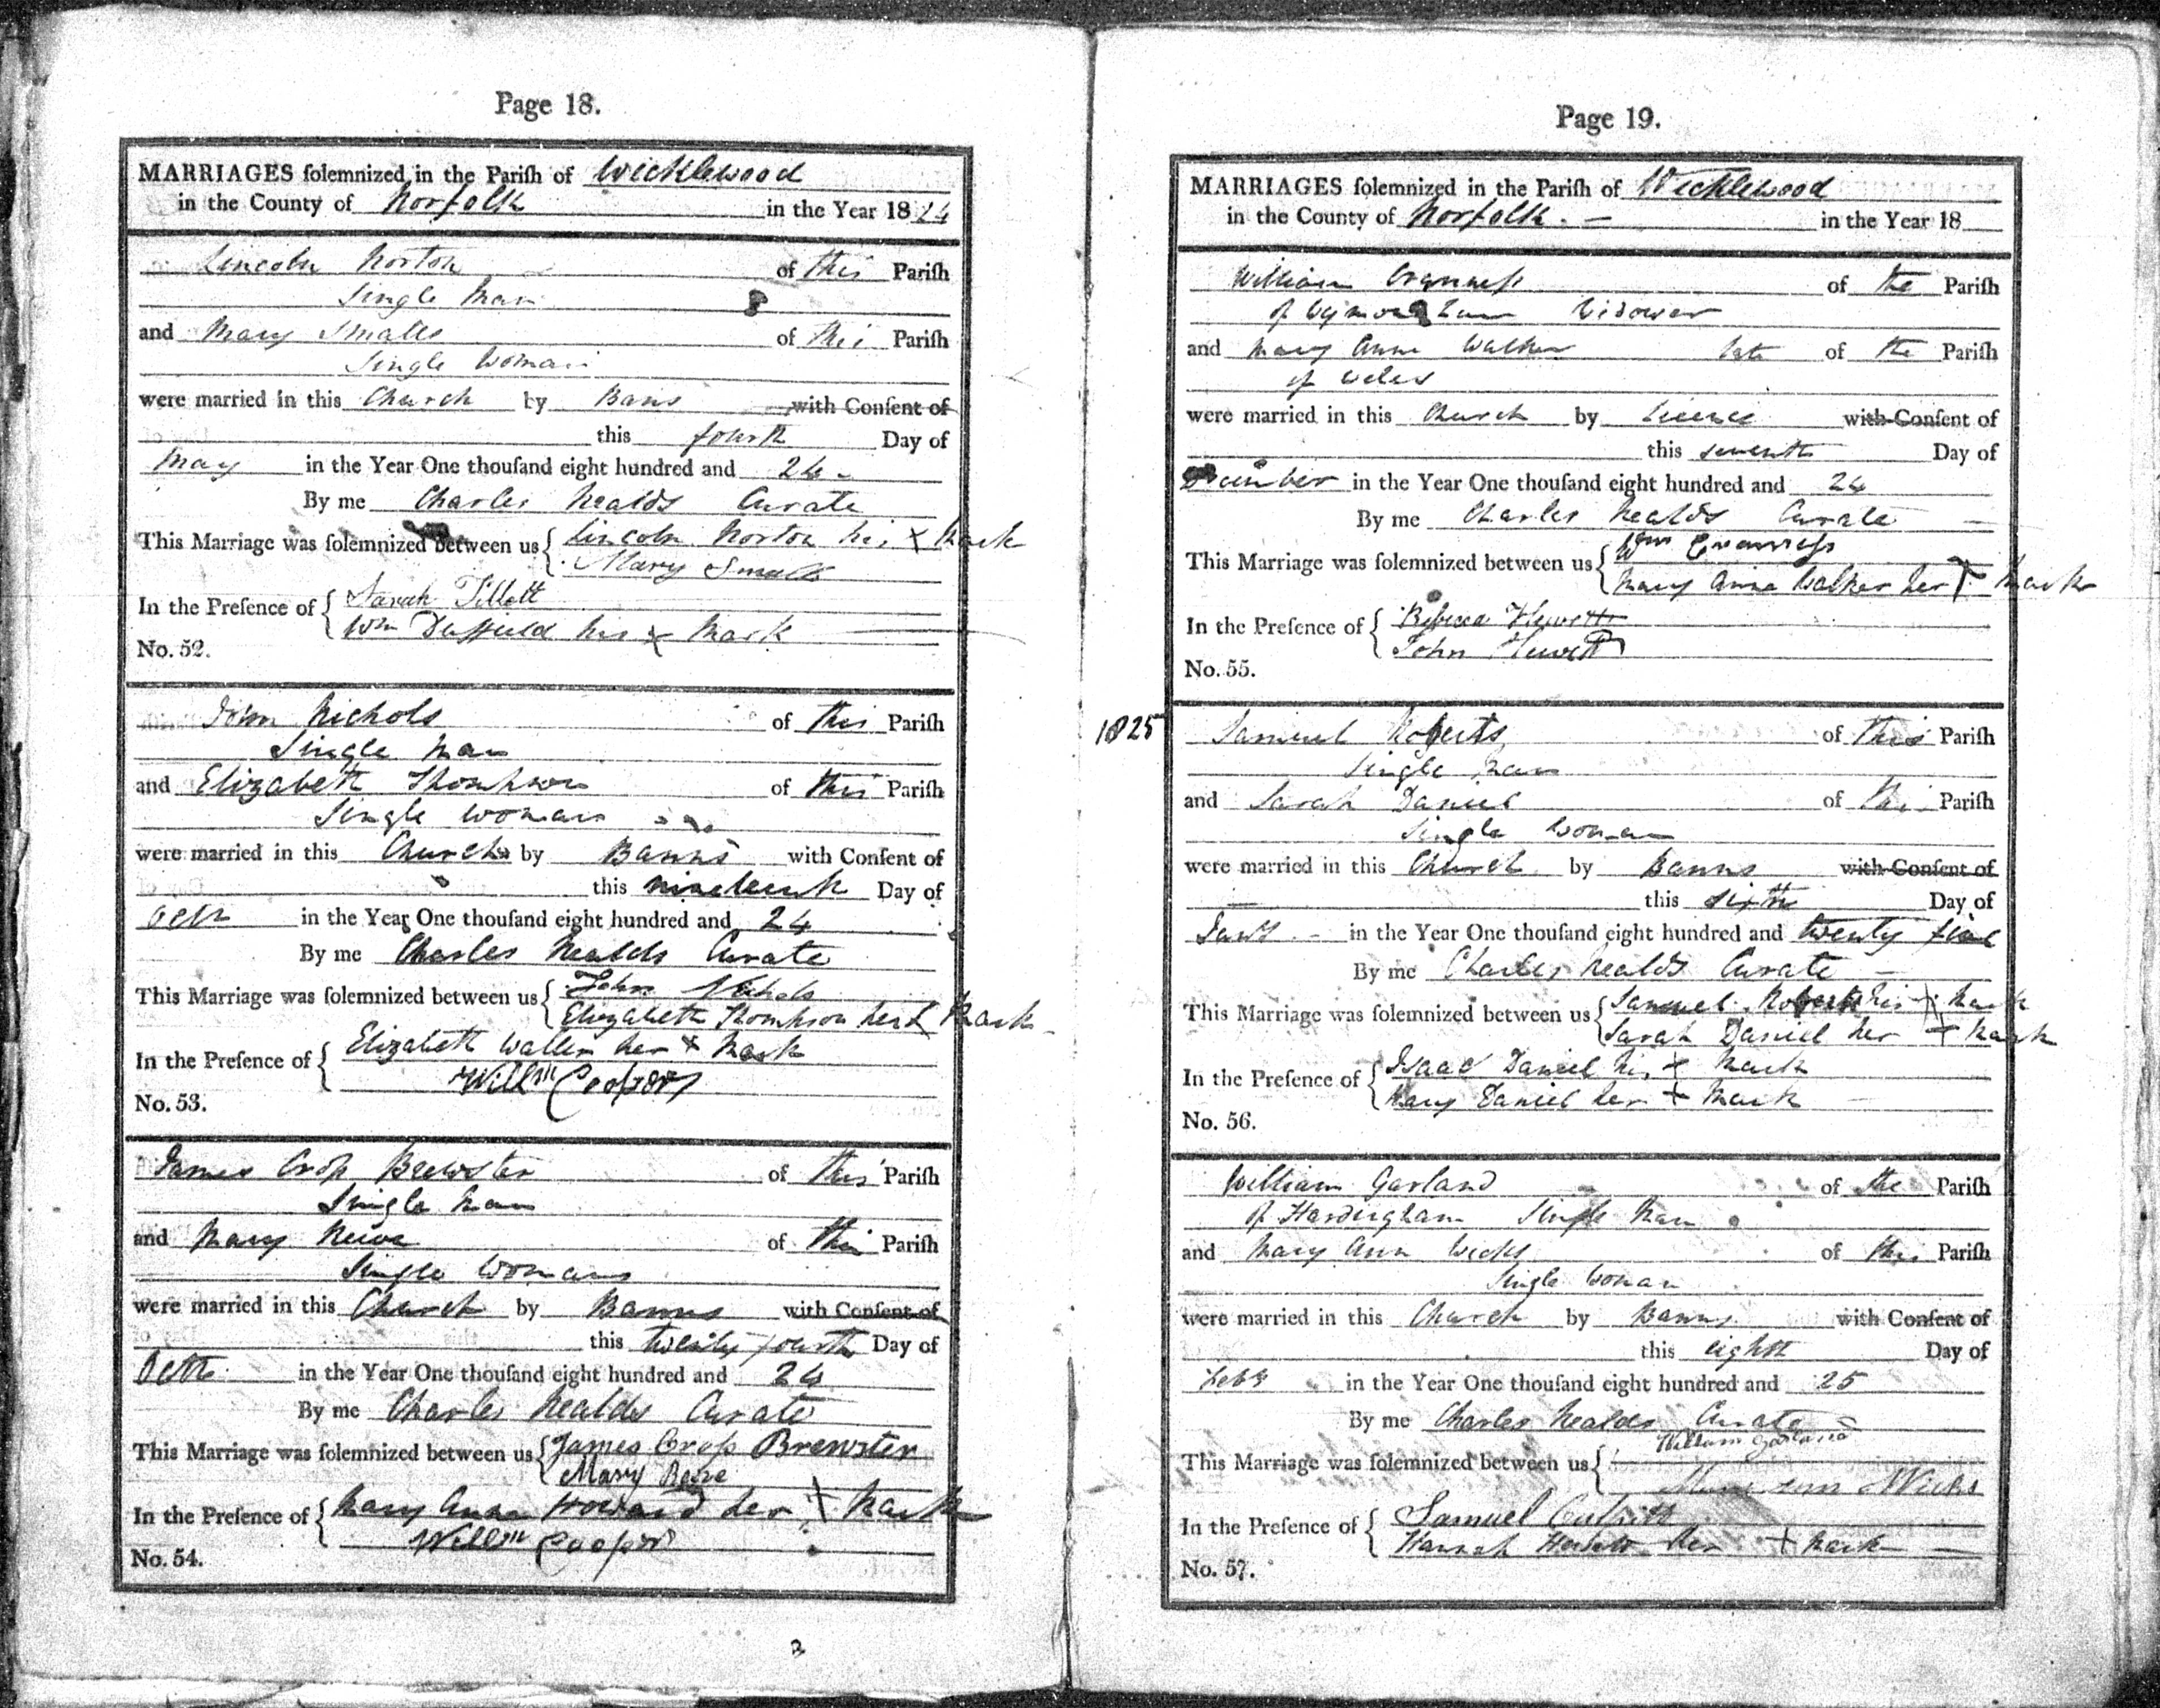 Page 18.
MARRIAGES ſolemnized in the Pariſh of Wicklewood
in the County of Norfolk in the Year 1824
Lincoln Norton of this Pariſh
Single Man
and Mary Smalls of this Pariſh
Single Woman
were married in this Church by Bans with Conſent of
this fourth Day of
May in the Year One thouſand eight hundred and 24
By me Charles Nealds Curate
This Marriage was ſolemnized between us { Lincoln Norton his X Mark
Mary Smalls
In the Preſence of { Sarah Tillott
Wm Duffield his X Mark
No. 52.
John Nichols of this Pariſh
Single Man
and Elizabeth Thompson of this Pariſh
Single Woman
were married in this Church by Banns with Conſent of
this nineteenth Day of
Octr in the Year One thouſand eight hundred and 24
By me Charles Nealds Curate
This Marriage was ſolemnized between us { John Nichols
Elizabeth Thompson her X Mark
In the Preſence of { Elizabeth Waller her X Mark
Willm Cooper
No. 53.
James Croſs Brewster of this Pariſh
Single Man
and Mary of this Pariſh
Single Woman
were married in this Church by Banns with Conſent of
this twenty fourth Day of
Octr in the Year One thouſand eight hundred and 24
By me Charles Nealds Curate
This Marriage was ſolemnized between us { James Croſs Brewster
Mary
In the Preſence of { Mary Anne Howard her X Mark
Willm Cooper
No. 54.
Page 19.
MARRIAGES ſolemnized in the Pariſh of Wicklewood
in the County of Norfolk. in the Year 18
William of the Pariſh
of Wymondham Widower
and Mary Anne Walker late of the Pariſh
of
were married in this Church by Licence with Conſent of
this seventh Day of
December in the Year One thouſand eight hundred and 24
By me Charles Nealds Curate
This Marriage was ſolemnized between us { Wm
Mary Anne Walker her X Mark
In the Preſence of { Rebecca Hewett
John Hewett
No. 55.
1825 Samuel Roberts of this Pariſh
Single Man
and Sarah Daniel of this Pariſh
Single Woman
were married in this Church by Banns with Conſent of
this sixth Day of
Jany in the Year One thouſand eight hundred and twenty five
By me Charles Nealds Curate
This Marriage was ſolemnized between us { Samuel Roberts his X Mark
Sarah Daniel her X Mark
In the Preſence of { Isaac Daniel his X Mark
Mary Daniel her X Mark
No. 56.
William Garland of the Pariſh
of Hardingham Single Man
and Mary Ann Wicks of this Pariſh
Single Woman
were married in this Church by Banns with Conſent of
this eighth Day of
Feby in the Year One thouſand eight hundred and 25
By me Charles Nealds Curate
William Garland
This Marriage was ſolemnized between us {
Mary Ann Wicks
In the Preſence of { Samuel
Hannah her X Mark
No. 57.